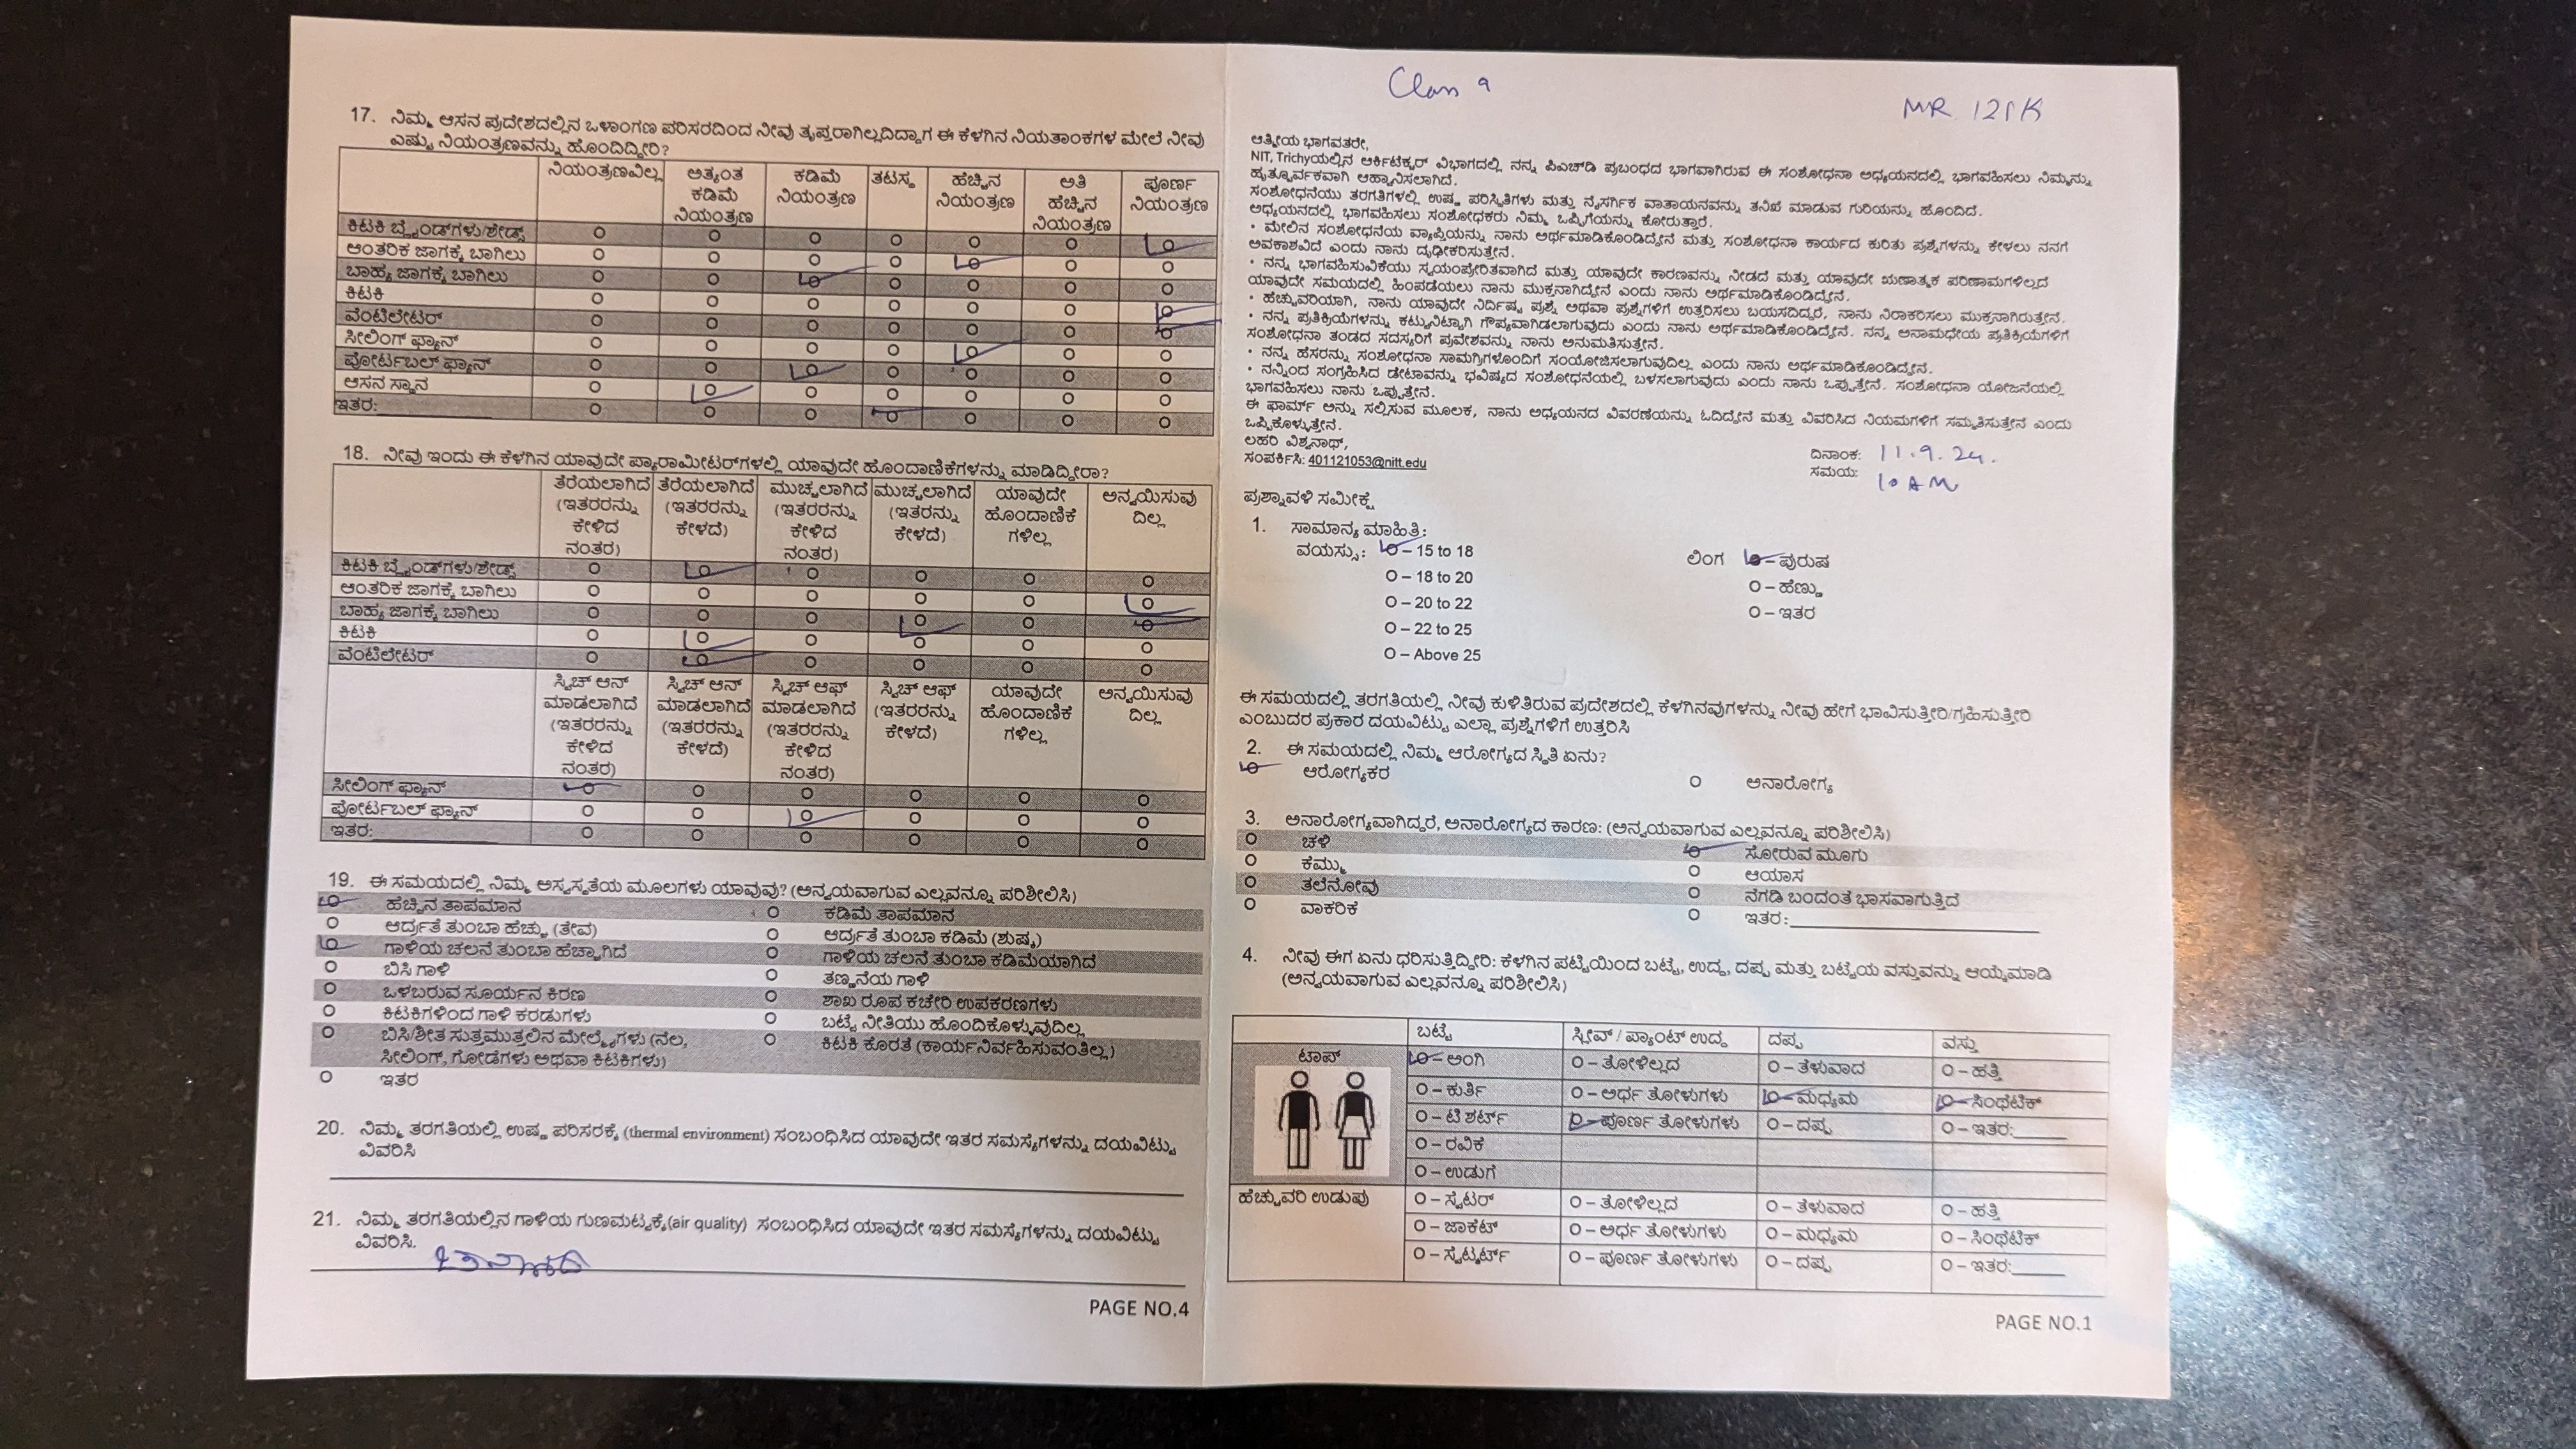 17. ನಿಮ್ಮ ಆಸನ ಪ್ರದೇಶದಲ್ಲಿನ ಒಳಾಂಗಣ ಪರಿಸರದಿಂದ ನೀವು ತೃಪ್ತರಾಗಿಲ್ಲದಿದ್ದಾಗ ಈ ಕೆಳಗಿನ ನಿಯತಾಂಕಗಳ ಮೇಲೆ ನೀವು
ಎಷ್ಟು ನಿಯಂತ್ರಣವನ್ನು ಹೊಂದಿದ್ದೀರಿ?
ನಿಯಂತ್ರಣವಿಲ್ಲ ಅತ್ಯಂತ ಕಡಿಮೆ ನಿಯಂತ್ರಣ ಕಡಿಮೆ ನಿಯಂತ್ರಣ ತಟಸ್ಥ ಹೆಚ್ಚಿನ ನಿಯಂತ್ರಣ ಅತಿ ಹೆಚ್ಚಿನ ನಿಯಂತ್ರಣ ಪೂರ್ಣ ನಿಯಂತ್ರಣ
ಕಿಟಕಿ ಬ್ಲೈಂಡ್‌ಗಳು/ಶೇಡ್ಸ್ O O O O O O O
ಆಂತರಿಕ ಜಾಗಕ್ಕೆ ಬಾಗಿಲು O O O O O O O
ಬಾಹ್ಯ ಜಾಗಕ್ಕೆ ಬಾಗಿಲು O O O O O O O
ಕಿಟಕಿ O O O O O O O
ವೆಂಟಿಲೇಟರ್ O O O O O O O
ಸೀಲಿಂಗ್ ಫ್ಯಾನ್ O O O O O O O
ಪೋರ್ಟಬಲ್ ಫ್ಯಾನ್ O O O O O O O
ಆಸನ ಸ್ಥಾನ O O O O O O O
ಇತರ: O O O O O O O
18. ನೀವು ಇಂದು ಈ ಕೆಳಗಿನ ಯಾವುದೇ ಪ್ಯಾರಾಮೀಟರ್‌ಗಳಲ್ಲಿ ಯಾವುದೇ ಹೊಂದಾಣಿಕೆಗಳನ್ನು ಮಾಡಿದ್ದೀರಾ?
ತೆರೆಯಲಾಗಿದೆ (ಇತರರನ್ನು ಕೇಳಿದ ನಂತರ) ತೆರೆಯಲಾಗಿದೆ (ಇತರರನ್ನು ಕೇಳದೆ) ಮುಚ್ಚಲಾಗಿದೆ (ಇತರರನ್ನು ಕೇಳಿದ ನಂತರ) ಮುಚ್ಚಲಾಗಿದೆ (ಇತರರನ್ನು ಕೇಳದೆ) ಯಾವುದೇ ಹೊಂದಾಣಿಕೆಗಳಿಲ್ಲ ಅನ್ವಯಿಸುವುದಿಲ್ಲ
ಕಿಟಕಿ ಬ್ಲೈಂಡ್‌ಗಳು/ಶೇಡ್ಸ್ O O O O O O
ಆಂತರಿಕ ಜಾಗಕ್ಕೆ ಬಾಗಿಲು O O O O O O
ಬಾಹ್ಯ ಜಾಗಕ್ಕೆ ಬಾಗಿಲು O O O O O O
ಕಿಟಕಿ O O O O O O
ವೆಂಟಿಲೇಟರ್ O O O O O O
ಸ್ವಿಚ್ ಆನ್ ಮಾಡಲಾಗಿದೆ (ಇತರರನ್ನು ಕೇಳಿದ ನಂತರ) ಸ್ವಿಚ್ ಆನ್ ಮಾಡಲಾಗಿದೆ (ಇತರರನ್ನು ಕೇಳದೆ) ಸ್ವಿಚ್ ಆಫ್ ಮಾಡಲಾಗಿದೆ (ಇತರರನ್ನು ಕೇಳಿದ ನಂತರ) ಸ್ವಿಚ್ ಆಫ್ (ಇತರರನ್ನು ಕೇಳದೆ) ಯಾವುದೇ ಹೊಂದಾಣಿಕೆಗಳಿಲ್ಲ ಅನ್ವಯಿಸುವುದಿಲ್ಲ
ಸೀಲಿಂಗ್ ಫ್ಯಾನ್ O O O O O O
ಪೋರ್ಟಬಲ್ ಫ್ಯಾನ್ O O O O O O
ಇತರ: O O O O O O
19. ಈ ಸಮಯದಲ್ಲಿ ನಿಮ್ಮ ಅಸ್ವಸ್ಥತೆಯ ಮೂಲಗಳು ಯಾವುವು? (ಅನ್ವಯವಾಗುವ ಎಲ್ಲವನ್ನೂ ಪರಿಶೀಲಿಸಿ)
O ಹೆಚ್ಚಿನ ತಾಪಮಾನ O ಕಡಿಮೆ ತಾಪಮಾನ
O ಆರ್ದ್ರತೆ ತುಂಬಾ ಹೆಚ್ಚು (ತೇವ) O ಆರ್ದ್ರತೆ ತುಂಬಾ ಕಡಿಮೆ (ಶುಷ್ಕ)
O ಗಾಳಿಯ ಚಲನೆ ತುಂಬಾ ಹೆಚ್ಚಾಗಿದೆ O ಗಾಳಿಯ ಚಲನೆ ತುಂಬಾ ಕಡಿಮೆಯಾಗಿದೆ
O ಬಿಸಿ ಗಾಳಿ O ತಣ್ಣನೆಯ ಗಾಳಿ
O ಒಳಬರುವ ಸೂರ್ಯನ ಕಿರಣ O ಶಾಖ ರೂಪ ಕಚೇರಿ ಉಪಕರಣಗಳು
O ಕಿಟಕಿಗಳಿಂದ ಗಾಳಿ ಕರಡುಗಳು O ಬಟ್ಟೆ ನೀತಿಯು ಹೊಂದಿಕೊಳ್ಳುವುದಿಲ್ಲ
O ಬಿಸಿ/ಶೀತ ಸುತ್ತಮುತ್ತಲಿನ ಮೇಲ್ಮೈಗಳು (ನೆಲ, O ಕಿಟಕಿ ಕೊರತೆ (ಕಾರ್ಯನಿರ್ವಹಿಸುವಂತಿಲ್ಲ)
ಸೀಲಿಂಗ್, ಗೋಡೆಗಳು ಅಥವಾ ಕಿಟಕಿಗಳು)
O ಇತರ
20. ನಿಮ್ಮ ತರಗತಿಯಲ್ಲಿ ಉಷ್ಣ ಪರಿಸರಕ್ಕೆ (thermal environment) ಸಂಬಂಧಿಸಿದ ಯಾವುದೇ ಇತರ ಸಮಸ್ಯೆಗಳನ್ನು ದಯವಿಟ್ಟು
ವಿವರಿಸಿ
21. ನಿಮ್ಮ ತರಗತಿಯಲ್ಲಿನ ಗಾಳಿಯ ಗುಣಮಟ್ಟಕ್ಕೆ(air quality) ಸಂಬಂಧಿಸಿದ ಯಾವುದೇ ಇತರ ಸಮಸ್ಯೆಗಳನ್ನು ದಯವಿಟ್ಟು
ವಿವರಿಸಿ.
PAGE NO.4
Class 9
MR 121K
ಆತ್ಮೀಯ ಭಾಗವತರೇ,
NIT, Trichyಯಲ್ಲಿನ ಆರ್ಕಿಟೆಕ್ಚರ್ ವಿಭಾಗದಲ್ಲಿ ನನ್ನ ಪಿಎಚ್‌ಡಿ ಪ್ರಬಂಧದ ಭಾಗವಾಗಿರುವ ಈ ಸಂಶೋಧನಾ ಅಧ್ಯಯನದಲ್ಲಿ ಭಾಗವಹಿಸಲು ನಿಮ್ಮನ್ನು
ಹೃತ್ಪೂರ್ವಕವಾಗಿ ಆಹ್ವಾನಿಸಲಾಗಿದೆ.
ಸಂಶೋಧನೆಯು ತರಗತಿಗಳಲ್ಲಿ ಉಷ್ಣ ಪರಿಸ್ಥಿತಿಗಳು ಮತ್ತು ನೈಸರ್ಗಿಕ ವಾತಾಯನವನ್ನು ತನಿಖೆ ಮಾಡುವ ಗುರಿಯನ್ನು ಹೊಂದಿದೆ.
ಅಧ್ಯಯನದಲ್ಲಿ ಭಾಗವಹಿಸಲು ಸಂಶೋಧಕರು ನಿಮ್ಮ ಒಪ್ಪಿಗೆಯನ್ನು ಕೋರುತ್ತಾರೆ.
• ಮೇಲಿನ ಸಂಶೋಧನೆಯ ವ್ಯಾಪ್ತಿಯನ್ನು ನಾನು ಅರ್ಥಮಾಡಿಕೊಂಡಿದ್ದೇನೆ ಮತ್ತು ಸಂಶೋಧನಾ ಕಾರ್ಯದ ಕುರಿತು ಪ್ರಶ್ನೆಗಳನ್ನು ಕೇಳಲು ನನಗೆ
ಅವಕಾಶವಿದೆ ಎಂದು ನಾನು ದೃಢೀಕರಿಸುತ್ತೇನೆ.
• ನನ್ನ ಭಾಗವಹಿಸುವಿಕೆಯು ಸ್ವಯಂಪ್ರೇರಿತವಾಗಿದೆ ಮತ್ತು ಯಾವುದೇ ಕಾರಣವನ್ನು ನೀಡದೆ ಮತ್ತು ಯಾವುದೇ ಋಣಾತ್ಮಕ ಪರಿಣಾಮಗಳಿಲ್ಲದೆ
ಯಾವುದೇ ಸಮಯದಲ್ಲಿ ಹಿಂಪಡೆಯಲು ನಾನು ಮುಕ್ತನಾಗಿದ್ದೇನೆ ಎಂದು ನಾನು ಅರ್ಥಮಾಡಿಕೊಂಡಿದ್ದೇನೆ.
• ಹೆಚ್ಚುವರಿಯಾಗಿ, ನಾನು ಯಾವುದೇ ನಿರ್ದಿಷ್ಟ ಪ್ರಶ್ನೆ ಅಥವಾ ಪ್ರಶ್ನೆಗಳಿಗೆ ಉತ್ತರಿಸಲು ಬಯಸದಿದ್ದರೆ, ನಾನು ನಿರಾಕರಿಸಲು ಮುಕ್ತನಾಗಿರುತ್ತೇನೆ.
• ನನ್ನ ಪ್ರತಿಕ್ರಿಯೆಗಳನ್ನು ಕಟ್ಟುನಿಟ್ಟಾಗಿ ಗೌಪ್ಯವಾಗಿಡಲಾಗುವುದು ಎಂದು ನಾನು ಅರ್ಥಮಾಡಿಕೊಂಡಿದ್ದೇನೆ. ನನ್ನ ಅನಾಮಧೇಯ ಪ್ರತಿಕ್ರಿಯೆಗಳಿಗೆ
ಸಂಶೋಧನಾ ತಂಡದ ಸದಸ್ಯರಿಗೆ ಪ್ರವೇಶವನ್ನು ನಾನು ಅನುಮತಿಸುತ್ತೇನೆ.
• ನನ್ನ ಹೆಸರನ್ನು ಸಂಶೋಧನಾ ಸಾಮಗ್ರಿಗಳೊಂದಿಗೆ ಸಂಯೋಜಿಸಲಾಗುವುದಿಲ್ಲ ಎಂದು ನಾನು ಅರ್ಥಮಾಡಿಕೊಂಡಿದ್ದೇನೆ.
• ನನ್ನಿಂದ ಸಂಗ್ರಹಿಸಿದ ಡೇಟಾವನ್ನು ಭವಿಷ್ಯದ ಸಂಶೋಧನೆಯಲ್ಲಿ ಬಳಸಲಾಗುವುದು ಎಂದು ನಾನು ಒಪ್ಪುತ್ತೇನೆ. ಸಂಶೋಧನಾ ಯೋಜನೆಯಲ್ಲಿ
ಭಾಗವಹಿಸಲು ನಾನು ಒಪ್ಪುತ್ತೇನೆ.
ಈ ಫಾರ್ಮ್ ಅನ್ನು ಸಲ್ಲಿಸುವ ಮೂಲಕ, ನಾನು ಅಧ್ಯಯನದ ವಿವರಣೆಯನ್ನು ಓದಿದ್ದೇನೆ ಮತ್ತು ವಿವರಿಸಿದ ನಿಯಮಗಳಿಗೆ ಸಮ್ಮತಿಸುತ್ತೇನೆ ಎಂದು
ಒಪ್ಪಿಕೊಳ್ಳುತ್ತೇನೆ.
ಲಹರಿ ವಿಶ್ವನಾಥ್,
ಸಂಪರ್ಕಿಸಿ: 401121053@nitt.edu
ದಿನಾಂಕ: 11.9.24.
ಸಮಯ: 10 AM
ಪ್ರಶ್ನಾವಳಿ ಸಮೀಕ್ಷೆ
1. ಸಾಮಾನ್ಯ ಮಾಹಿತಿ:
ವಯಸ್ಸು: O – 15 to 18 ಲಿಂಗ O – ಪುರುಷ
O – 18 to 20 O – ಹೆಣ್ಣು
O – 20 to 22 O – ಇತರ
O – 22 to 25
O – Above 25
ಈ ಸಮಯದಲ್ಲಿ ತರಗತಿಯಲ್ಲಿ ನೀವು ಕುಳಿತಿರುವ ಪ್ರದೇಶದಲ್ಲಿ ಕೆಳಗಿನವುಗಳನ್ನು ನೀವು ಹೇಗೆ ಭಾವಿಸುತ್ತೀರಿ/ಗ್ರಹಿಸುತ್ತೀರಿ
ಎಂಬುದರ ಪ್ರಕಾರ ದಯವಿಟ್ಟು ಎಲ್ಲಾ ಪ್ರಶ್ನೆಗಳಿಗೆ ಉತ್ತರಿಸಿ
2. ಈ ಸಮಯದಲ್ಲಿ ನಿಮ್ಮ ಆರೋಗ್ಯದ ಸ್ಥಿತಿ ಏನು?
O ಆರೋಗ್ಯಕರ O ಅನಾರೋಗ್ಯ
3. ಅನಾರೋಗ್ಯವಾಗಿದ್ದರೆ, ಅನಾರೋಗ್ಯದ ಕಾರಣ: (ಅನ್ವಯವಾಗುವ ಎಲ್ಲವನ್ನೂ ಪರಿಶೀಲಿಸಿ)
O ಚಳಿ O ಸೋರುವ ಮೂಗು
O ಕೆಮ್ಮು O ಆಯಾಸ
O ತಲೆನೋವು O ನೆಗಡಿ ಬಂದಂತೆ ಭಾಸವಾಗುತ್ತಿದೆ
O ವಾಕರಿಕೆ O ಇತರ:
4. ನೀವು ಈಗ ಏನು ಧರಿಸುತ್ತಿದ್ದೀರಿ: ಕೆಳಗಿನ ಪಟ್ಟಿಯಿಂದ ಬಟ್ಟೆ, ಉದ್ದ, ದಪ್ಪ ಮತ್ತು ಬಟ್ಟೆಯ ವಸ್ತುವನ್ನು ಆಯ್ಕೆಮಾಡಿ
(ಅನ್ವಯವಾಗುವ ಎಲ್ಲವನ್ನೂ ಪರಿಶೀಲಿಸಿ)
ಬಟ್ಟೆ ಸ್ಲೀವ್ / ಪ್ಯಾಂಟ್ ಉದ್ದ ದಪ್ಪ ವಸ್ತು
ಟಾಪ್ O – ಅಂಗಿ O – ತೋಳಿಲ್ಲದ O – ತೆಳುವಾದ O – ಹತ್ತಿ
O – ಕುರ್ತಿ O – ಅರ್ಧ ತೋಳುಗಳು O – ಮಧ್ಯಮ O – ಸಿಂಥೆಟಿಕ್
O – ಟಿ ಶರ್ಟ್ O – ಪೂರ್ಣ ತೋಳುಗಳು O – ದಪ್ಪ O – ಇತರ:
O – ರವಿಕೆ
O – ಉಡುಗೆ
ಹೆಚ್ಚುವರಿ ಉಡುಪು O – ಸ್ವೆಟರ್ O – ತೋಳಿಲ್ಲದ O – ತೆಳುವಾದ O – ಹತ್ತಿ
O – ಜಾಕೆಟ್ O – ಅರ್ಧ ತೋಳುಗಳು O – ಮಧ್ಯಮ O – ಸಿಂಥೆಟಿಕ್
O – ಸ್ವೆಟ್ಶರ್ಟ್ O – ಪೂರ್ಣ ತೋಳುಗಳು O – ದಪ್ಪ O – ಇತರ:
PAGE NO.1